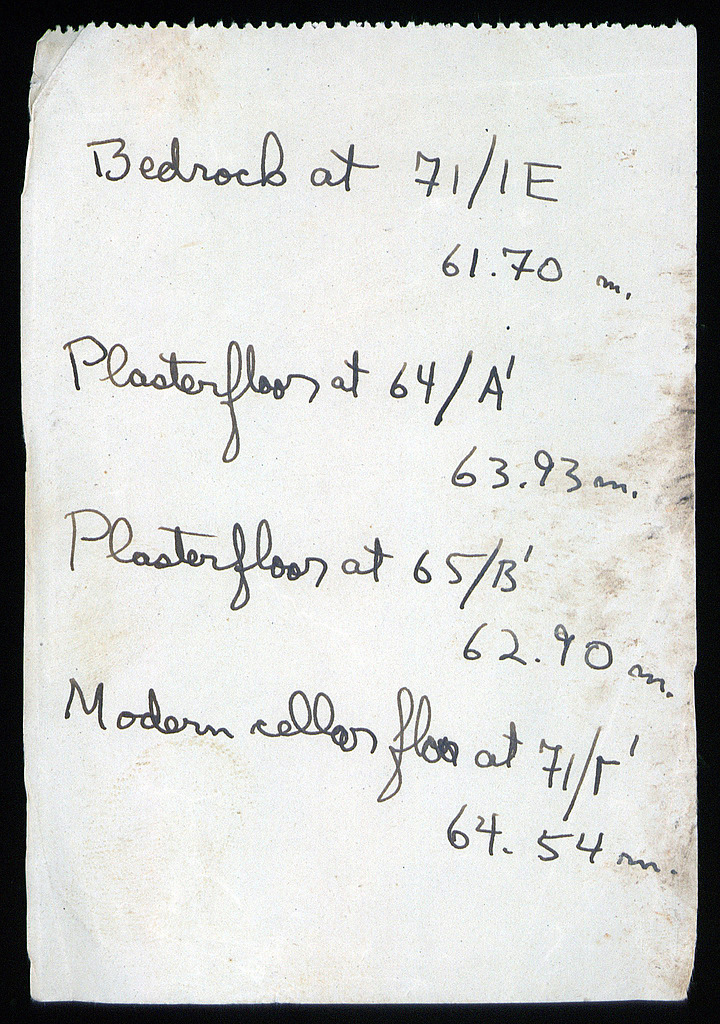 Bedrock at 71/ΙΕ
61.70 m.
Plasterfloor at 64/Α'
63.93 m.
Plasterfloor at 65/Β'
62.90 m.
Modern cellar floor at 71/Γ'
64.54 m.